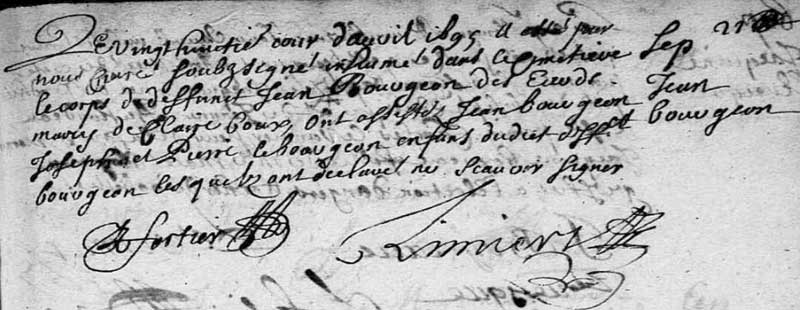 Le vingt huictie jour d'apvril 1695 A esté par
nous curé soubzsigné inhumé dans le cimetiere Sep 21
le corps de deffunct Jean Bourgeon des
marij de Claire boux, ont assistés Jean bourgeon Jean
Joseph et Pierre le bourgeon enfans dudict deffct bourgeon
bourgeon lesquelz ont declaré ne scavoir signer
fortier